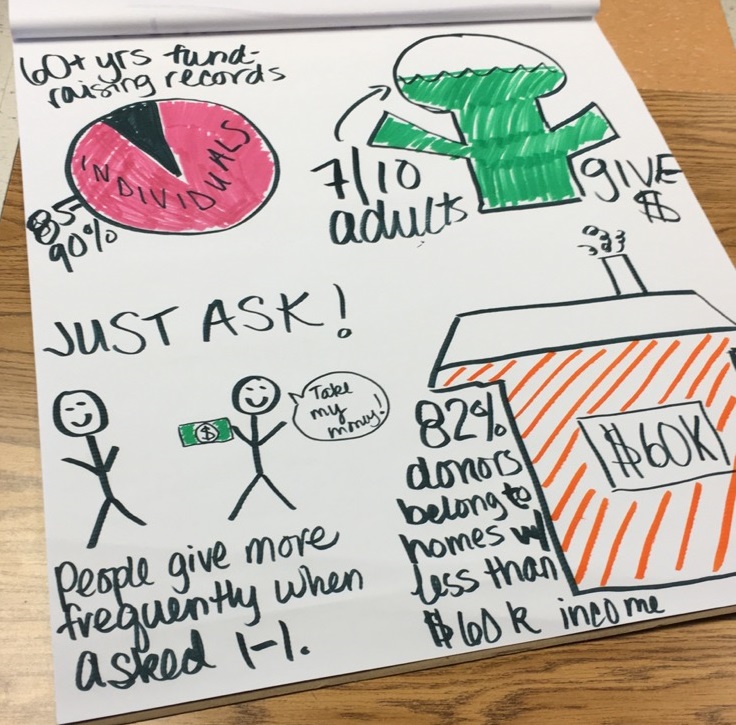 60+ yrs fund-
raising records
INDIVIDUALS
85-
90%
7/10
adults
give
$
JUST ASK!
$
Take
my
money!
People give more
frequently when
asked 1-1.
82%
donors
belong to
homes w/
less than
$60k income
$60K